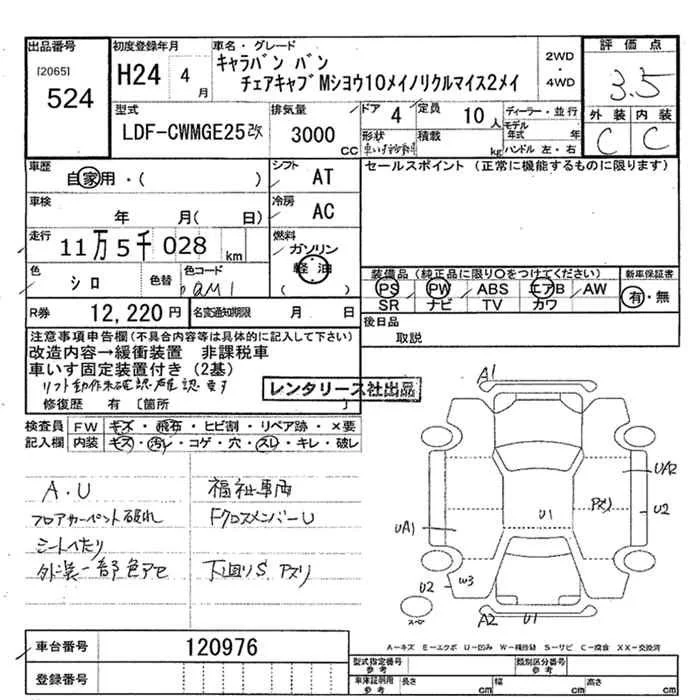 出品番号
[2065]
524
初度登録年月
H24 4月
車名・グレード
キャラバン バン
チェアキャブMショウ10メイノリクルマイス2メイ
2WD
・
4WD
評価点
3.5
外装 内装
C C
型式
LDF-CWMGE25改
排気量
3000
CC
ドア
4
定員
10人
形状
積載
kg
ディーラー・並行
モデル年式 年
ハンドル 左・右
車歴
自家用・( )
シフト
AT
セールスポイント(正常に機能するものに限ります)
車検
年 月( 日)
冷房
AC
走行
11万5千028km
燃料
ガソリン
軽油
( )
色
シロ
色替
色コード
装備品(純正品に限り○をつけてください)
PS PW ABS エアB AW
SR ナビ TV カワ
新車保証書
有・無
R券
12,220円
名変通知期限
月 日
後日品
取説
注意事項申告欄(不具合内容等は具体的に記入して下さい)
改造内容→緩衝装置 非課税車
車いす固定装置付き(2基)
リフト動作未確認 確認要す
修復歴 有〔箇所 〕
レンタリース社出品
検査員記入欄
FW キズ・飛石・ヒビ割・リペア跡・×要
内装 キズ・汚レ・コゲ・穴・スレ・キレ・破レ
A・U
フロアカーペント破れ
シートへたり
外装一部色アセ
福祉車両
FクロスメンバーU
下回りS、アズリ
A1
UA2
U2
アズリ
U1
UA1
U2
W3
A2
U1
スペア
A−キズ E−エクボ U−凹み W−補修跡 S−サビ C−腐食 XX−交換済
車台番号
120976
登録番号
型式指定番号
参考
類別区分番号
参考
車庫証明用
参考
長さ cm
幅 cm
高さ cm